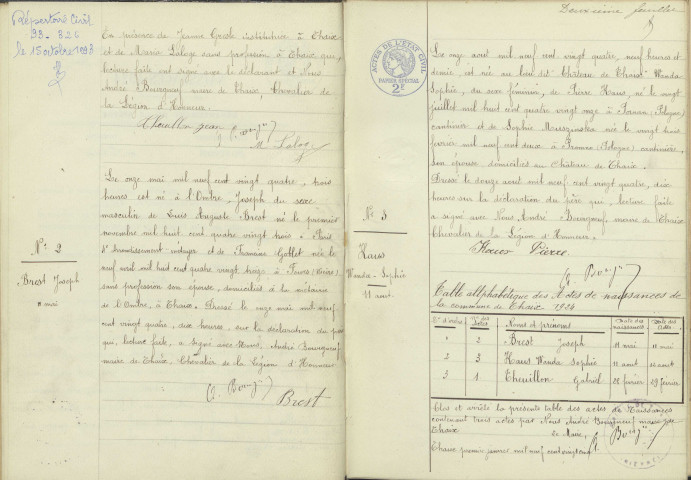 Répertoire Civil
93. 326
le 15 octobre 1993
En présence de Jeanne institutrice à Thaix
et de Maria Laloge sans profession à Thaix qui,
lecture faite ont signé avec le déclarant et Nous
André Bourgneuf maire de Thaix, Chevalier de
la Légion d'Honneur.
Thevillon Jean
M. Laloge
N° 2
Brest Joseph
mai
Le onze mai mil neuf cent vingt quatre, trois
heures est né à l'Ombre Joseph du sexe
masculin de Louis Auguste Brest né le premier
novembre mil huit cent quatre vingt trois à Paris
d'arrondissement métayer et de Gollet née le
neuf mil huit cent quatre vingt treize à Tours (Nièvre)
sans profession son épouse, domiciliés à la métairie
de l'Ombre, à Thaix. Dressé le onze mai mil neuf
cent vingt quatre, dix heures, sur la déclaration du père
qui, lecture faite, a signé avec Nous, André Bourgneuf
maire de Thaix, Chevalier de la Légion d'Honneur
Brest
Deuxième feuillet
ACTES DE L'ÉTAT CIVIL
PAPIER SPÉCIAL
2F
N° 3
Haus
Wanda-Sophie
11 août
Le onze août mil neuf cent vingt quatre, neuf heures et
demie, est née au lieu dit Château de Thaix Wanda
Sophie, du sexe féminin, de Pierre Haus, né le vingt
juillet mil huit cent quatre vingt onze à Poznan (Pologne)
cantinier et de Sophie née le vingt huit
février mil neuf cent deux à Poznan (Pologne) cantinière,
son épouse domiciliés au Château de Thaix.
Dressé le douze août mil neuf cent vingt quatre, dix
heures sur la déclaration du père qui, lecture faite
a signé avec Nous André Bourgneuf, maire de Thaix
Chevalier de la Légion d'Honneur.
Haus Pierre
Table alphabétique des Actes de naissances de
la commune de Thaix 1924
N° d'ordre N° des Actes Noms et prénoms Date des naissances Date des Actes
1 2 Brest Joseph 11 mai 11 mai
2 3 Haus Wanda Sophie 11 août 12 août
3 1 Thevillon Gabriel 28 février 29 février
Clos et arrêté la présente table des actes de Naissances
contenant trois actes par Nous André Bourgneuf maire de
Thaix
Le Maire,
Thaix premier janvier mil neuf cent vingt cinq